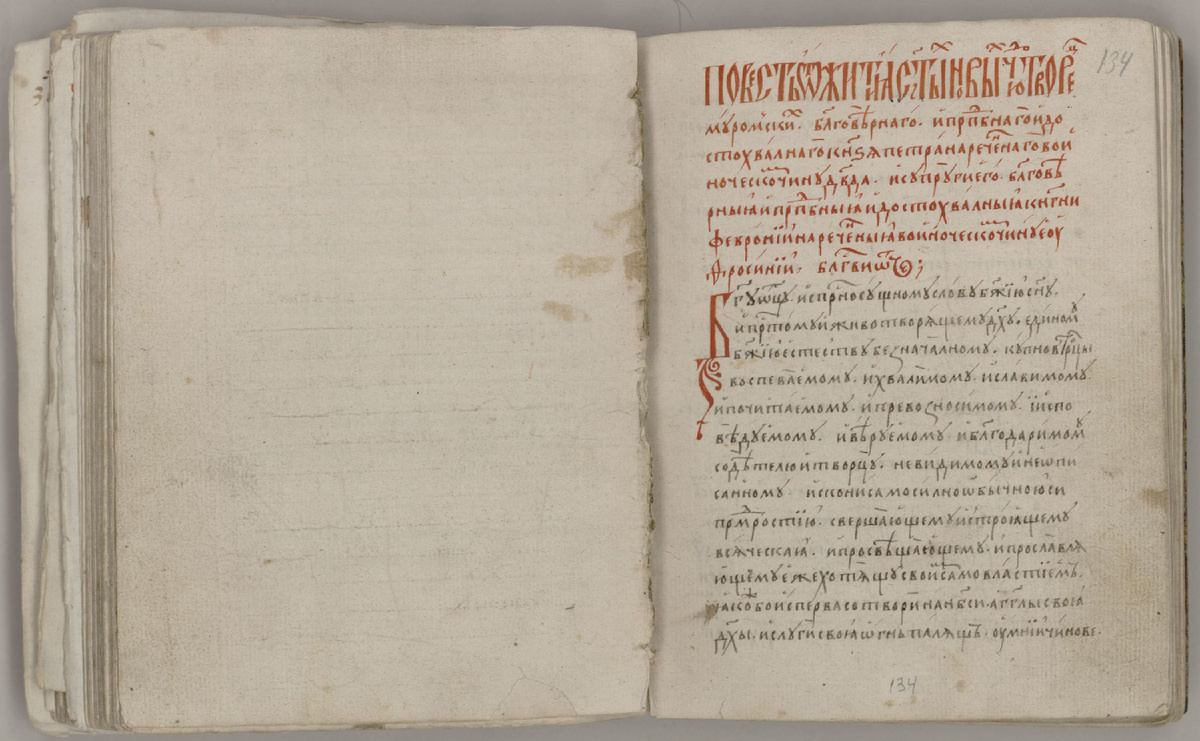 134
ПОВЕСТЬ Ѿ ЖИТИЯ СТЫ НОВЫ ЧЮТВОРЕ
муромски. блговѣрнаго. и прпбнаго идо
стохвалнаго кнѕя петра нареченаго вои
ноческо чину дв҃да. и супруги его. блговѣ
рныꙗ и прпбныꙗ и достохвалныꙗ кнгни
феврониї нареченыꙗ воиноческо чину еоу
фросинії. блгви ѿче;
Бг҃у ѿцу. и сприносущному слову бж҃їю сн҃у.
и прст҃ому и животворящему дх҃у. едином
бж҃їю естеству безначалному. купно втрцы
воспеваемому. и хвалимому. и славимому
и почитаемому. и превозносимому. ї испо
вѣдуемому. и вѣруемому и благодаримому
содѣтелю и творцу. невидимому и неѡпи
санному. искони самосилно ѡбычною си
прмростїю. свершающему и строящему
всяческаꙗ. и просвѣщающему. и прославля
ющему еже хотящу свои самовластїемъ.
ꙗкобо исперва сотвори на нб҃си. агг҃лы своꙗ
дх҃ы. и слуги своꙗ ѡгнь палящъ. оумнїи чинове.
134